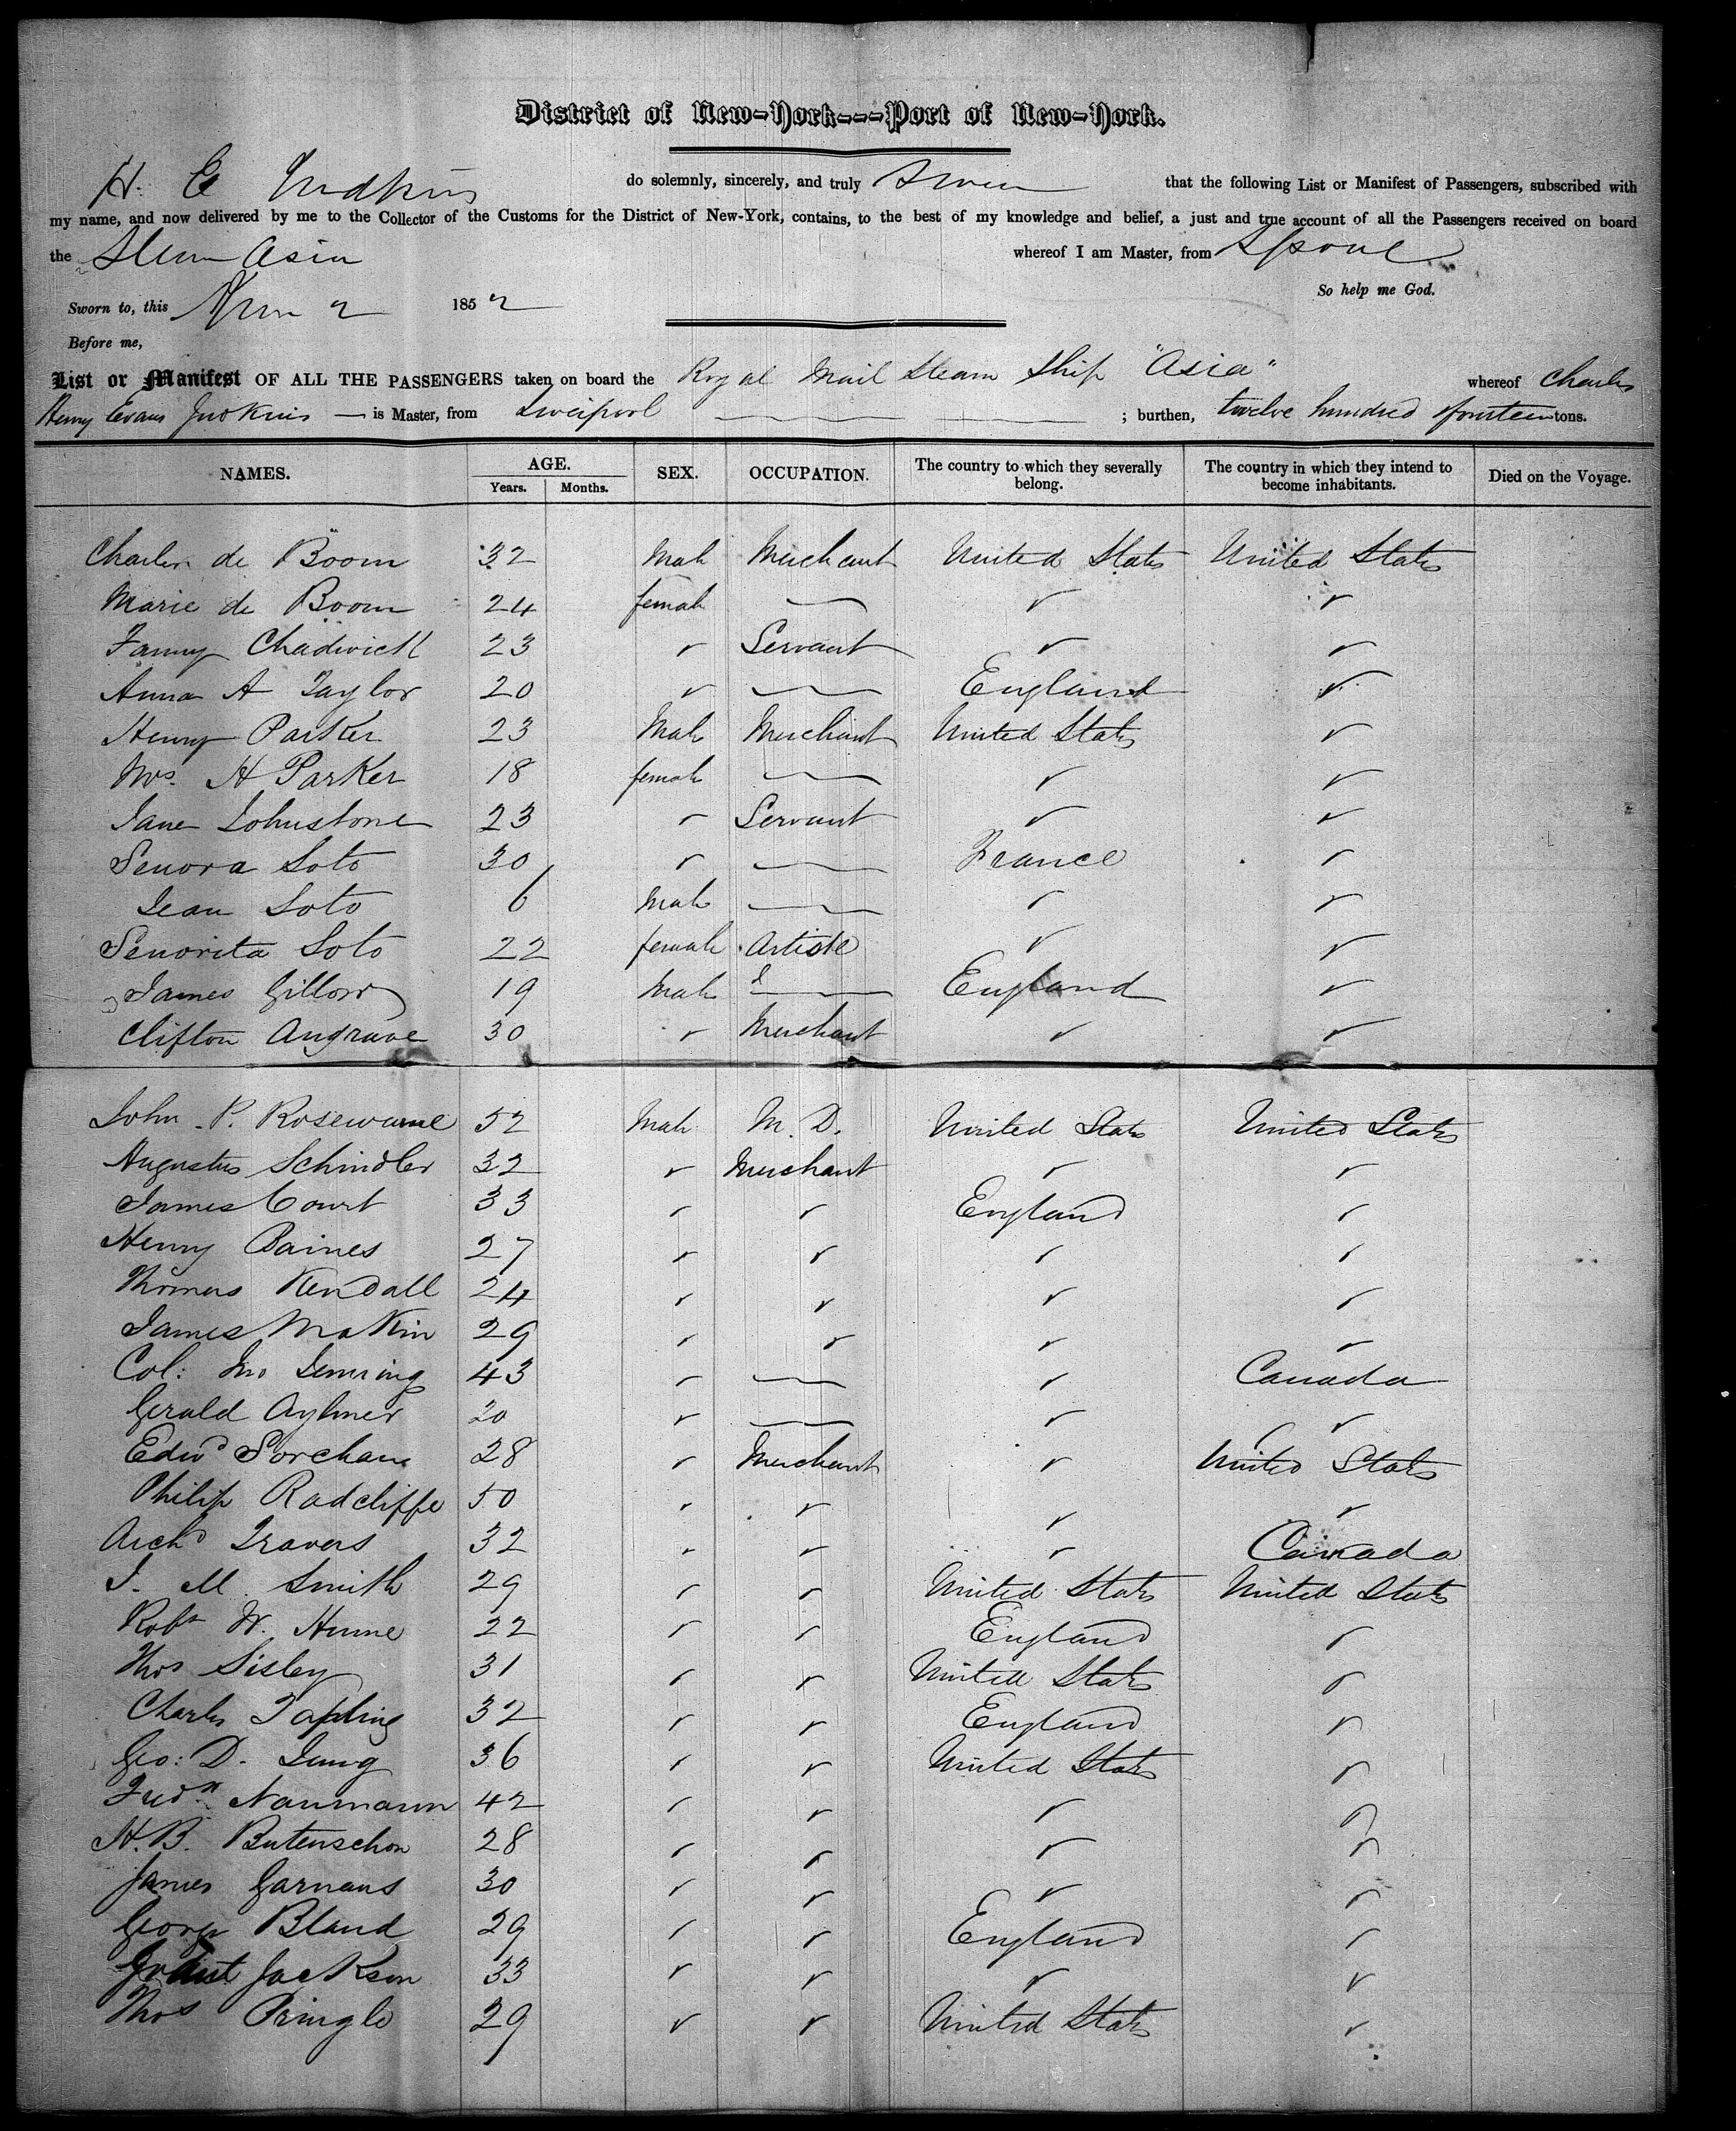 District of New-York---Port of New-York.
H. E Judkins do solemnly, sincerely, and truly Swear that the following List or Manifest of Passengers, subscribed with
my name, and now delivered by me to the Collector of the Customs for the District of New-York, contains, to the best of my knowledge and belief, a just and true account of all the Passengers received on board
the Steam Asia whereof I am Master, from Lpool
So help me God.
Sworn to, this 2 1852
Before me,
List or Manifest OF ALL THE PASSENGERS taken on board the Royal Mail Steam Ship "Asia" whereof Charles
Henry Evans Judkins — is Master, from Liverpool ; burthen, twelve hundred & fourteen tons.
NAMES. AGE. Years. Months. SEX. OCCUPATION. The country to which they severally belong. The country in which they intend to become inhabitants. Died on the Voyage.
Charles de Boom 32 Male Merchant United States United States
Marie de Boom 24 female — ✓ ✓
Fanny Chadwick 23 ✓ Servant ✓ ✓
Anna A Taylor 20 ✓ — England ✓
Henry Parker 23 Male Merchant United States ✓
Mrs. H Parker 18 female — ✓ ✓
Jane Johnstone 23 ✓ Servant ✓ ✓
Senora Soto 30 ✓ — France ✓
Jean Soto 6 Male — ✓ ✓
Senorita Soto 22 female Artiste ✓ ✓
James Gillow 19 Male — England ✓
Clifton Angrave 30 ✓ Merchant ✓ ✓
John P. Rosewarne 52 Male M. D. United States United States
Augustus Schindler 32 ✓ Merchant ✓ ✓
James Court 33 ✓ ✓ England ✓
Henry Baines 27 ✓ ✓ ✓ ✓
Thomas Kendall 24 ✓ ✓ ✓ ✓
James Makin 29 ✓ ✓ ✓ ✓
Col: Jno 43 ✓ — ✓ Canada
Gerald Aylmer 20 ✓ — ✓ ✓
Edwd Sorchan 28 ✓ Merchant ✓ United States
Philip Radcliffe 50 ✓ ✓ ✓ ✓
Archd Travers 32 ✓ ✓ ✓ Canada
J. M. Smith 29 ✓ ✓ United States United States
Robt W. Hume 22 ✓ ✓ England ✓
Thos Sisley 31 ✓ ✓ United States ✓
Charles Tapling 32 ✓ ✓ England ✓
Geo: D. 36 ✓ ✓ United States ✓
Fredk Naumann 42 ✓ ✓ ✓ ✓
H. B. Butenschon 28 ✓ ✓ ✓ ✓
James Garnaus 30 ✓ ✓ ✓ ✓
George Bland 29 ✓ ✓ England ✓
Jackson 33 ✓ ✓ ✓ ✓
Thos Pringle 29 ✓ ✓ United States ✓